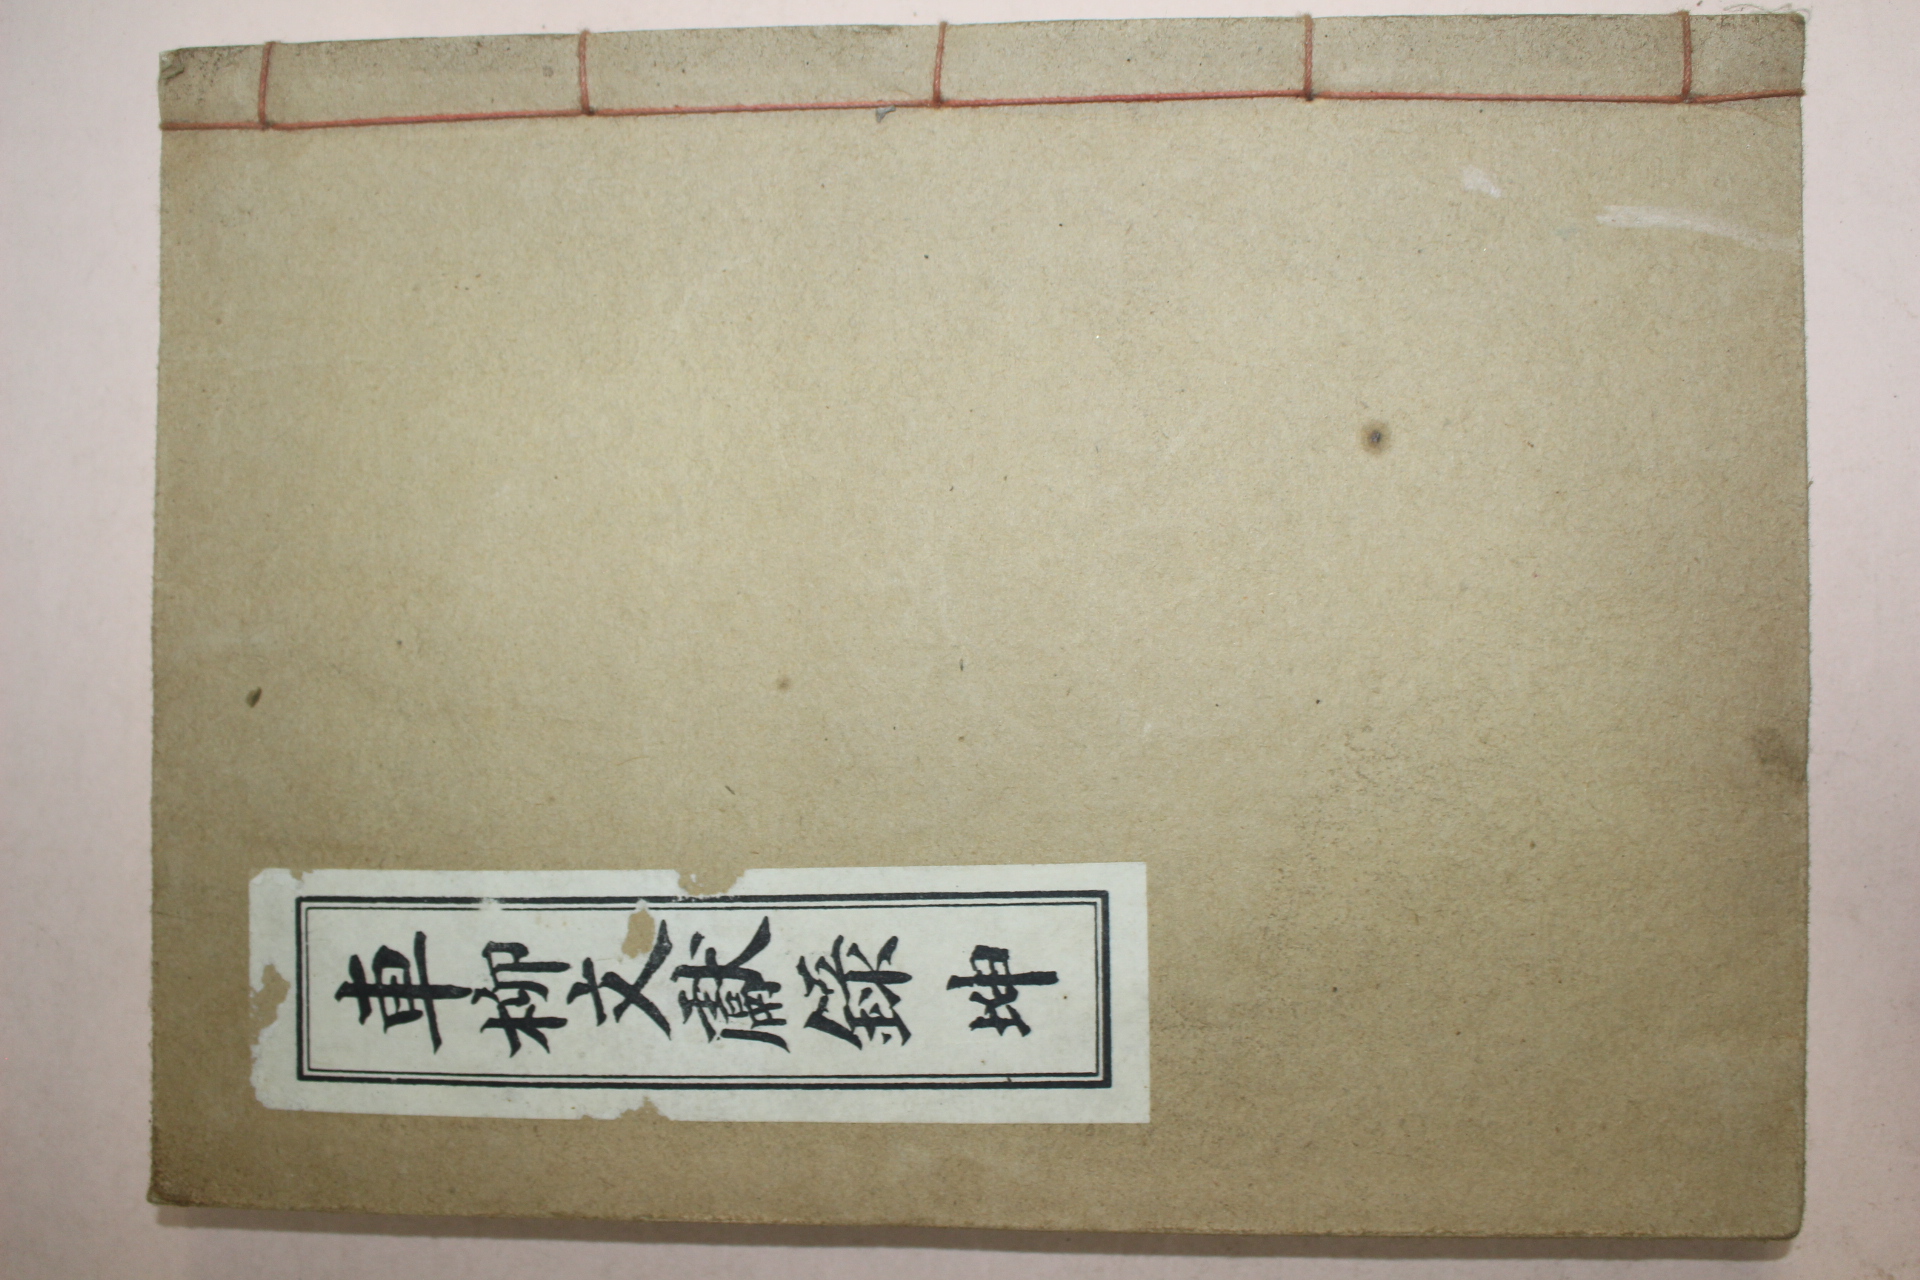 車柳文獻錄 坤